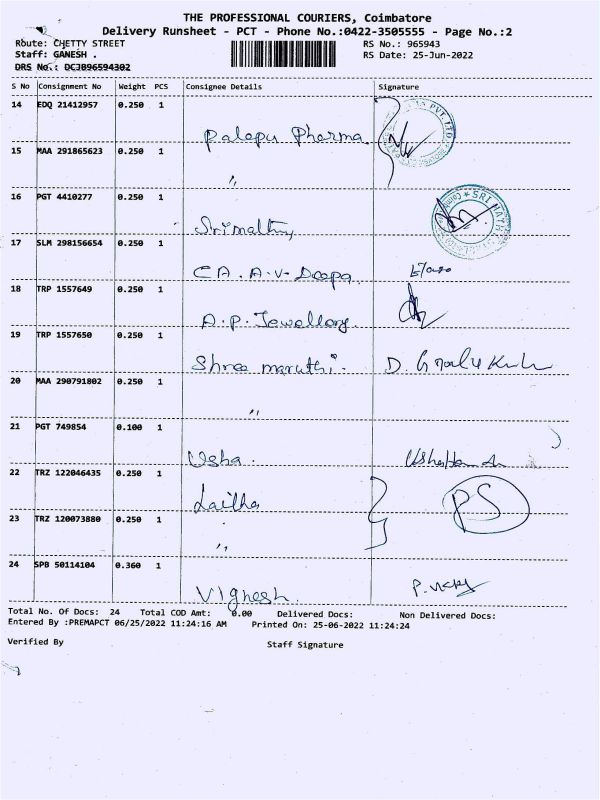 THE PROFESSIONAL COURIERS, Coimbatore
Delivery Runsheet - PCT - Phone No.:0422-3505555 - Page No.:2
Route: CHETTY STREET RS No.: 965943
Staff: GANESH . RS Date: 25-Jun-2022
DRS No.: DCJ096594302
S No Consignment No Weight PCS Consignee Details Signature
14 EDQ 21412957 0.250 1
Palepu Pharma.
15 MAA 291865623 0.250 1
"
16 PGT 4410277 0.250 1
Srimathy
17 SLM 298156654 0.250 1
CA. A.V. Deepa
18 TRP 1557649 0.250 1
A.P. Jewellery.
19 TRP 1557650 0.250 1
Shree maruthi.
20 MAA 290791802 0.250 1
"
21 PGT 749854 0.100 1
Usha.
22 TRZ 122046435 0.250 1
Lalitha PS
23 TRZ 120073880 0.250 1
"
24 SPB 50114104 0.360 1
Vighesh.
Total No. Of Docs: 24 Total COD Amt: 0.00 Delivered Docs: Non Delivered Docs:
Entered By :PREMAPCT 06/25/2022 11:24:16 AM Printed On: 25-06-2022 11:24:24
Verified By Staff Signature